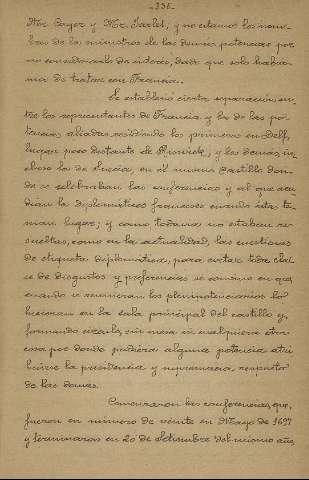 -336-
Mr Cayer y Mr. Jarlet, y no citamos los nom-
bres de los ministros de las demas potencias por
no considerarlo de interes, dado que solo habia-
mos de tratar con Francia.
Se estableció cierta separación en-
tre los representantes de Francia y los de las po-
tencias aliadas, residiendo los primeros en Delf,
lugar poco distante de Riswick, y los demas, in-
cluso los de Suecia, en el mismo castillo don-
de se celebraban las conferencias y al que acu-
dian los diplomaticos franceses cuando estas te-
nian lugar; y como todavia no estaban re-
sueltas, como en la actualidad, las cuestiones
de etiqueta diplomatica, para evitar toda cla-
se de disgustos y preferencias se convino en que
cuando se reunieran los plenipotenciarios lo
hicieran en la sala principal del castillo y,
formando circulo, sin mesa ni cualquiera otra
cosa por donde pudiera alguna potencia atri-
buirse la presidencia y supremacia respecto
de las demas.
Comenzaron las conferencias, que
fueron en numero de veinte en Mayo de 1697
y terminaron en 20 de Setiembre del mismo año,